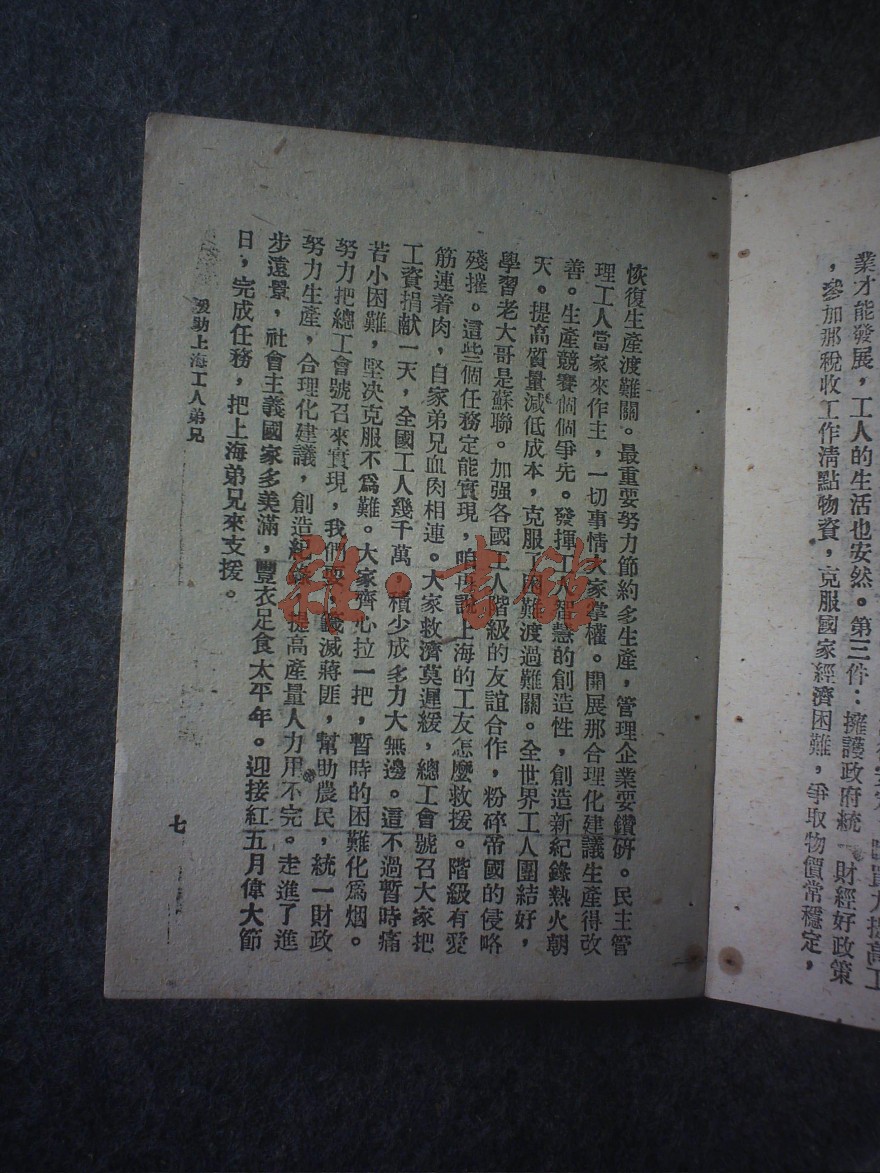 業才能發展，工人的生活也安然。第三件：擁護政府統一財經好政策
，參加那稅收工作清點物資，克服國家經濟困難，爭取物價常穩定，
恢復生產渡難關。最重要努力節約多生產，管理企業要鑽研。民主管
理工人當家來作主，一切事情大家掌權。開展那合理化建議生產得改
善。生產競賽個個爭先。發揮工人智慧的創造性，創造新紀錄熱火朝
天。提高質量減低成本，克服困難渡過難關。全世界工人團結好，
學習老大哥是蘇聯。加强各國工人階級的友誼合作，粉碎帝國的侵略
殘摧。這些個任務定能實現，咱再說上海的工友怎麽救援。階級有愛
筋連着肉，自家弟兄血肉相連。大家救濟莫遲緩，總工會號召大家把
工資捐献一天，全國工人幾千萬，積少成多力大無邊。這不過暫時痛
若小困難，堅决克服不爲難。大家齊心拉一把，暫時的困難化爲烟。
努力把總工會號召來實現，我們要，殲滅蔣匪，幫助農民，統一財政
努力生產，合理化建議，創造紀錄，提高產量人力用不完。走進了進
步遠景，社會主義國家多美滿，豐衣足食太平年。迎接紅五月偉大節
日，完成任務，把上海弟兄來支援。
援助上海工人弟兄
七
雜·書館